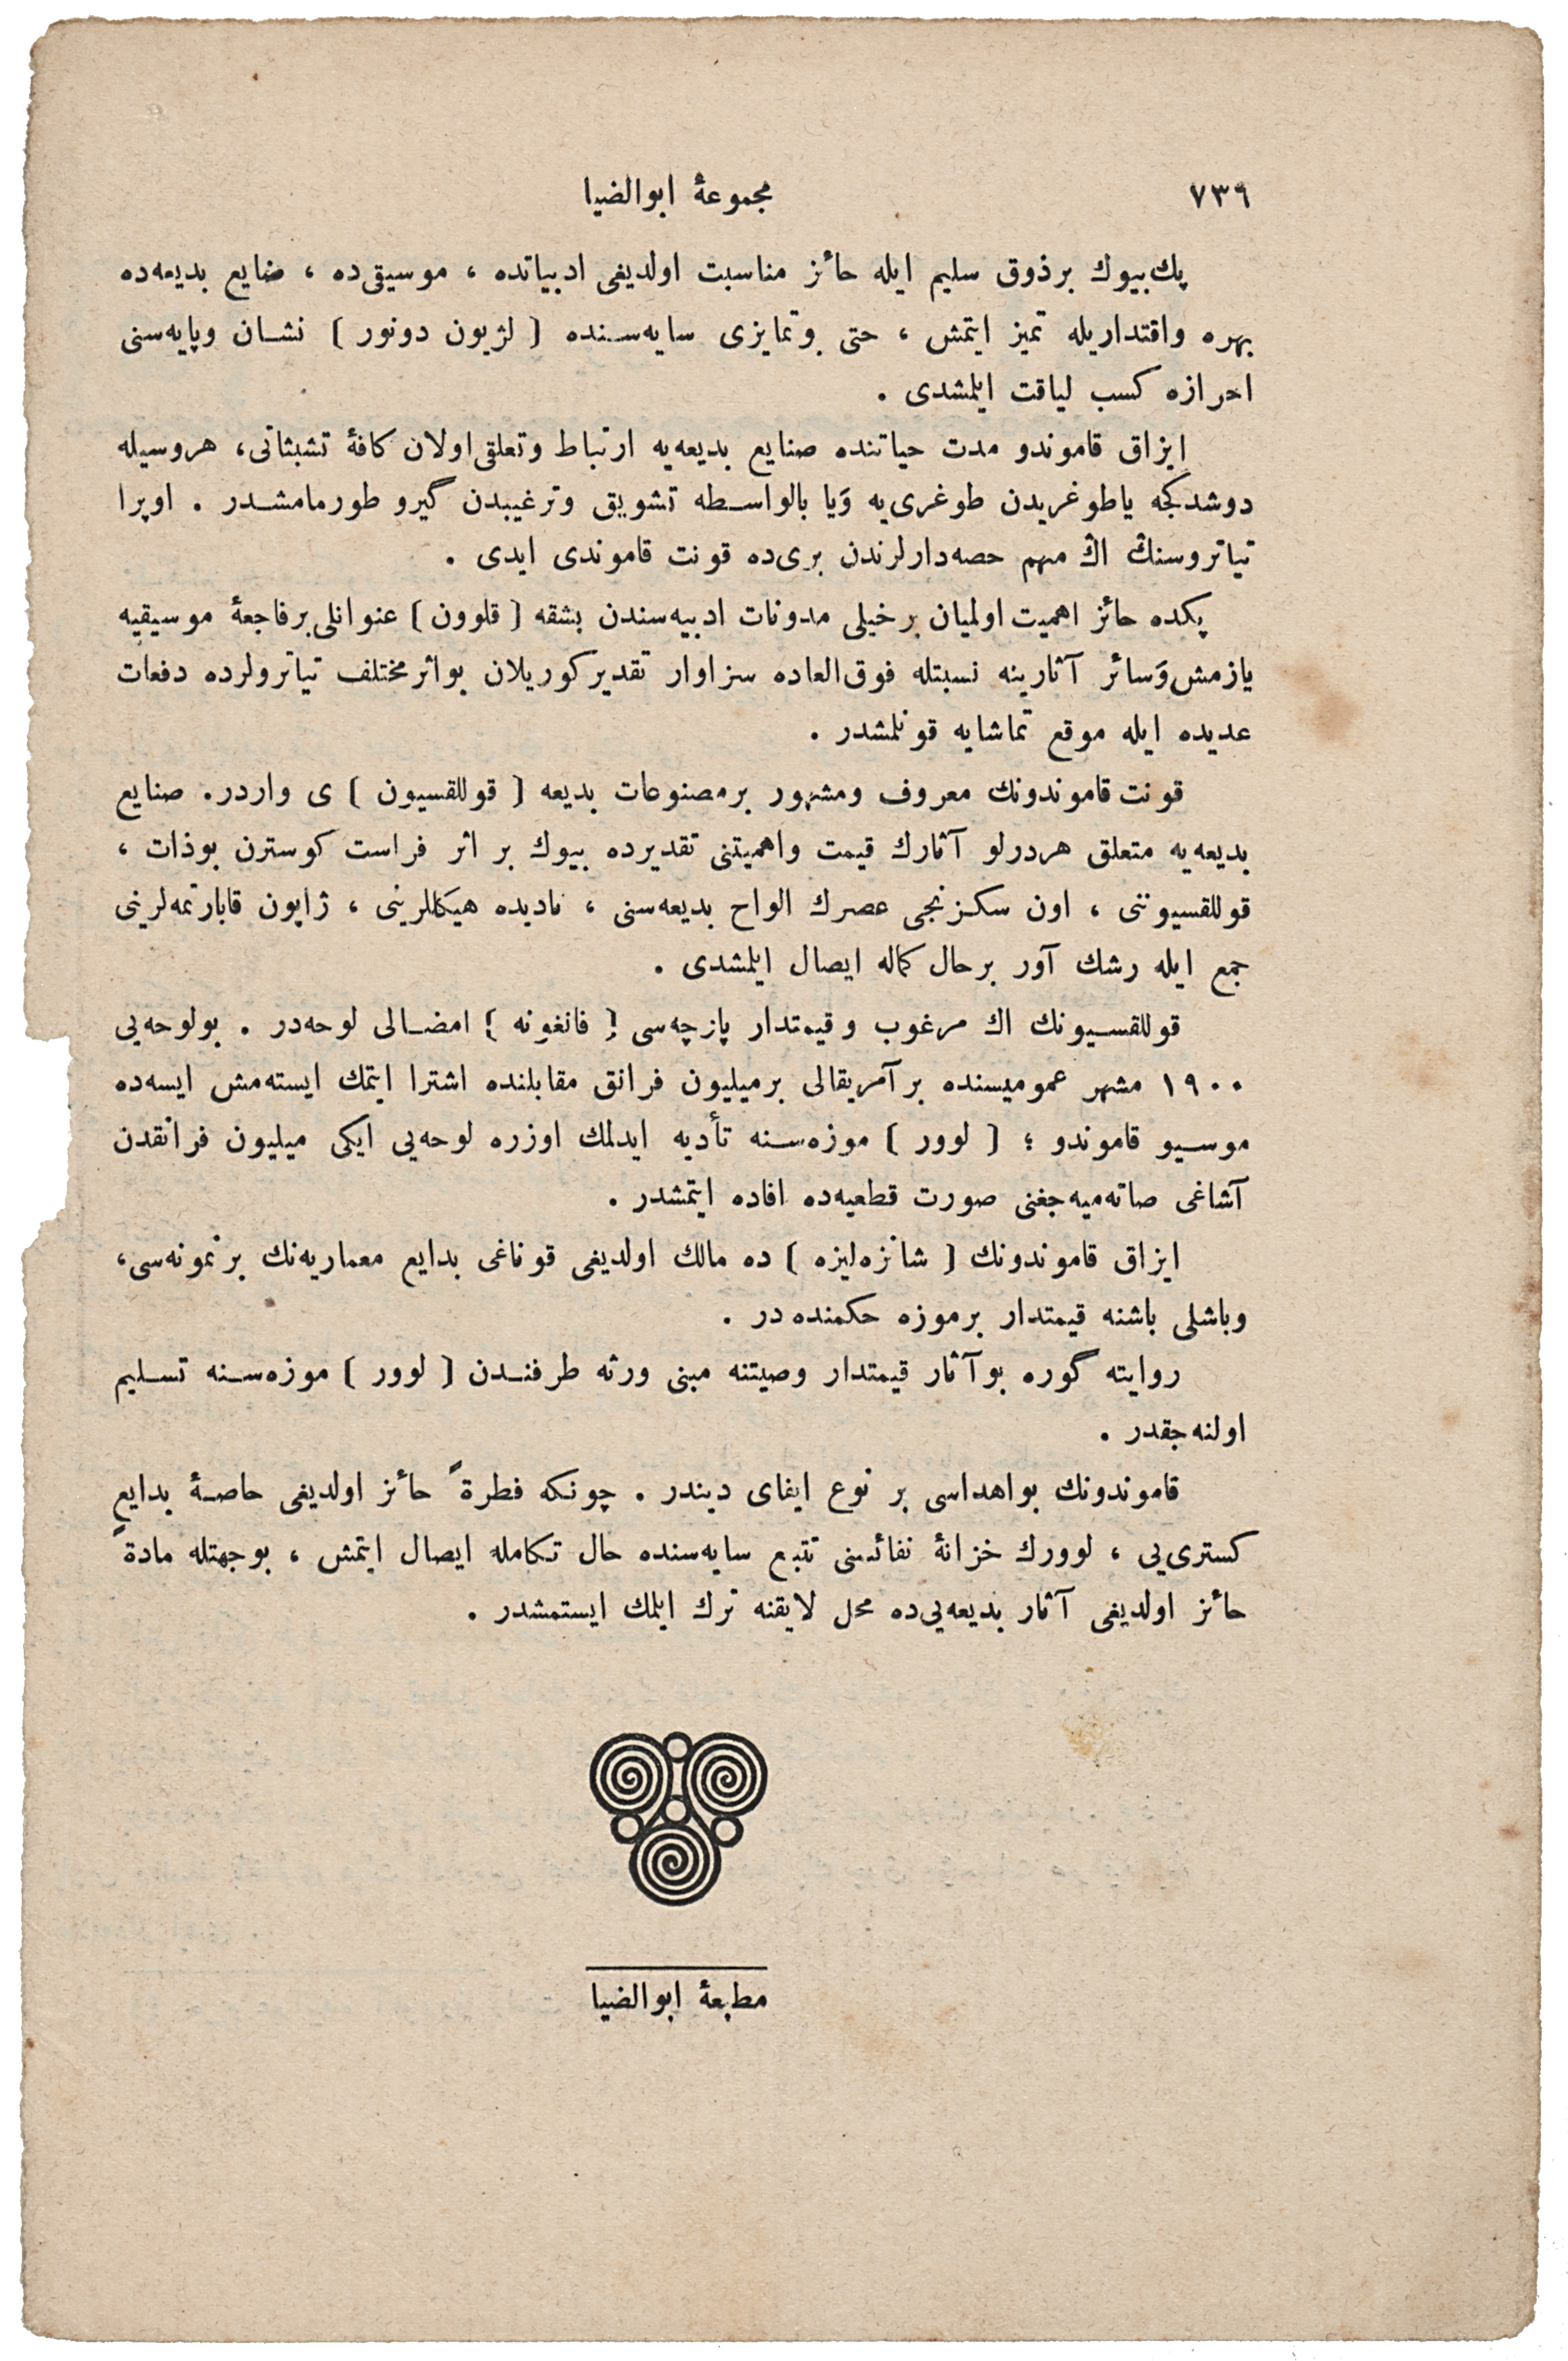 ٧٣٦
مجموعهٔ ابوالضیا
پك بیوك برذوق سلیم ایله حائز مناسبت اولدیغی ادبیاتده ، موسیقی‌ده ، ضایع بدیعه‌ده
بهره واقتداریله تمیز ایتمش ، حتی وتمایزی سایه‌سنده [ لژیون دونور ] نشان وپایه‌سنی
احرازه كسب لیاقت ایلمشدی .
ایزاق قاموندو مدت حیاتنده صنایع بدیعه‌یه ارتباط وتعلقی اولان كافهٔ تشبثاتی، هروسیله
دوشدكجه یاطوغریدن طوغری‌یه وَیا بالواسطه تشویق وترغیبدن گیرو طورمامشدر . اوپرا
تیاتروسنڭ اڭ مهم حصه‌دارلرندن بری‌ده قونت قاموندی ایدی .
پكده حائز اهمیت اولمیان برخیلی مدونات ادبیه‌سندن بشقه [ قلوون ] عنوانلی برفاجعهٔ موسیقیه
یازمش وَسائر آثارینه نسبتله فوق‌العاده سزاوار تقدیر كوریلان بواثر مختلف تیاترولرده دفعات
عدیده ایله موقع تماشایه قونلمشدر .
قونت قاموندونك معروف ومشهور برمصنوعات بدیعه [ قوللقسیون ] ی واردر. صنایع
بدیعه‌یه متعلق هردرلو آثارك قیمت واهمیتنی تقدیرده بیوك بر اثر فراست كوسترن بوذات ،
قوللقسیوننی ، اون سكزنجی عصرك الواح بدیعه‌سنی ، نادیده هیكللرینی ، ژاپون قابارتمه‌لرینی
جمع ایله رشك آور برحال كماله ایصال ایلمشدی .
قوللقسیونك اك مرغوب وقیمتدار پارچه‌سی [ فانغونه ] امضالی لوحه‌در . بولوحه‌یی
١٩٠٠ مشهر عمومیسنده برآمریقالی برمیلیون فرانق مقابلنده اشترا ایتمك ایسته‌مش ایسه‌ده
موسیو قاموندو ؛ [ لوور ] موزه‌سنه تأدیه ایدلمك اوزره لوحه‌یی ایكی میلیون فرانقدن
آشاغی صاته‌میه‌جغنی صورت قطعیه‌ده افاده ایتمشدر .
ایزاق قاموندونك [ شانزه‌لیزه ] ده مالك اولدیغی قوناغی بدایع معماریه‌نك برنمونه‌سی،
وباشلی باشنه قیمتدار برموزه حكمنده‌در .
روایته گوره بوآثار قیمتدار وصیتنه مبنی ورثه طرفندن [ لوور ] موزه‌سنه تسلیم
اولنه‌جقدر .
قاموندونك بواهداسی بر نوع ایفای دیندر . چونكه فطرةً حائز اولدیغی حاصهٔ بدایع
كستری‌یی ، لوورك خزانهٔ نفائسنی تتبع سایه‌سنده حال تكامله ایصال ایتمش ، بوجهتله مادةً
حائز اولدیغی آثار بدیعه‌یی‌ده محل لایقنه ترك ایلمك ایستمشدر .
مطبعهٔ ابوالضیا